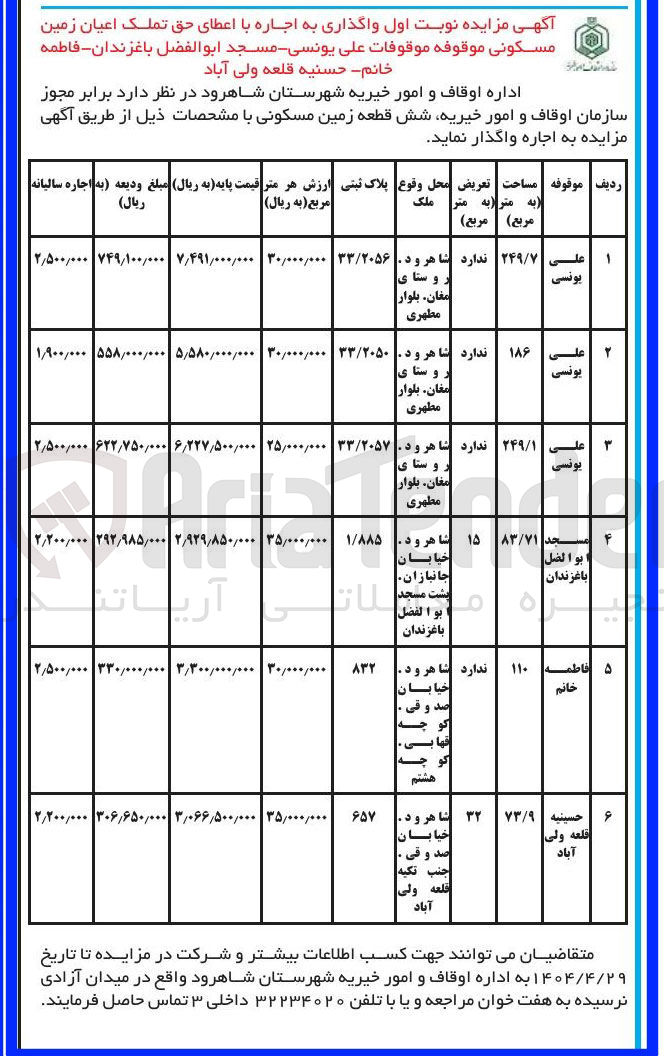 آگهی مزایده نوبت اول واگذاری به اجاره با اعطای حق تملک اعیان زمین
مسکونی موقوفه موقوفات علی یونسی-مسجد ابوالفضل باغزندان-فاطمه
خانم- حسنیه قلعه ولی آباد
اداره اوقاف و امور خیریه شهرستان شاهرود در نظر دارد برابر مجوز
سازمان اوقاف و امور خیریه، شش قطعه زمین مسکونی با مشخصات ذیل از طریق آگهی
مزایده به اجاره واگذار نماید.
ردیف موقوفه مساحت (به متر مربع) تعریض (به متر مربع) محل وقوع ملک پلاک ثبتی ارزش هر متر مربع(به ریال) قیمت پایه(به ریال) مبلغ ودیعه (به ریال) اجاره سالیانه
۱ علی یونسی ۲۴۹/۷ ندارد شاهرود. روستای مغان. بلوار مطهری ۳۳/۲۰۵۶ ۳۰/۰۰۰/۰۰۰ ۷/۴۹۱/۰۰۰/۰۰۰ ۷۴۹/۱۰۰/۰۰۰ ۲/۵۰۰/۰۰۰
۲ علی یونسی ۱۸۶ ندارد شاهرود. روستای مغان. بلوار مطهری ۳۳/۲۰۵۰ ۳۰/۰۰۰/۰۰۰ ۵/۵۸۰/۰۰۰/۰۰۰ ۵۵۸/۰۰۰/۰۰۰ ۱/۹۰۰/۰۰۰
۳ علی یونسی ۲۴۹/۱ ندارد شاهرود. روستای مغان. بلوار مطهری ۳۳/۲۰۵۷ ۲۵/۰۰۰/۰۰۰ ۶/۲۲۷/۵۰۰/۰۰۰ ۶۲۲/۷۵۰/۰۰۰ ۲/۵۰۰/۰۰۰
۴ مسجد ابوالفضل باغزندان ۸۳/۷۱ ۱۵ شاهرود. خیابان جانبازان. پشت مسجد ابوالفضل باغزندان ۱/۸۸۵ ۳۵/۰۰۰/۰۰۰ ۲/۹۲۹/۸۵۰/۰۰۰ ۲۹۲/۹۸۵/۰۰۰ ۲/۲۰۰/۰۰۰
۵ فاطمه خانم ۱۱۰ ندارد شاهرود. خیابان صدوقی. کوچه قهابی. کوچه هشتم ۸۳۲ ۳۰/۰۰۰/۰۰۰ ۳/۳۰۰/۰۰۰/۰۰۰ ۳۳۰/۰۰۰/۰۰۰ ۲/۵۰۰/۰۰۰
۶ حسینیه قلعه ولی آباد ۷۳/۹ ۳۲ شاهرود. خیابان صدوقی. جنب تکیه قلعه ولی آباد ۶۵۷ ۳۵/۰۰۰/۰۰۰ ۳/۰۶۶/۵۰۰/۰۰۰ ۳۰۶/۶۵۰/۰۰۰ ۲/۲۰۰/۰۰۰
متقاضیان می توانند جهت کسب اطلاعات بیشتر و شرکت در مزایده تا تاریخ
۱۴۰۴/۴/۲۹ به اداره اوقاف و امور خیریه شهرستان شاهرود واقع در میدان آزادی
نرسیده به هفت خوان مراجعه و یا با تلفن ۳۲۲۳۴۰۲۰ داخلی ۳ تماس حاصل فرمایند.
AriaTender